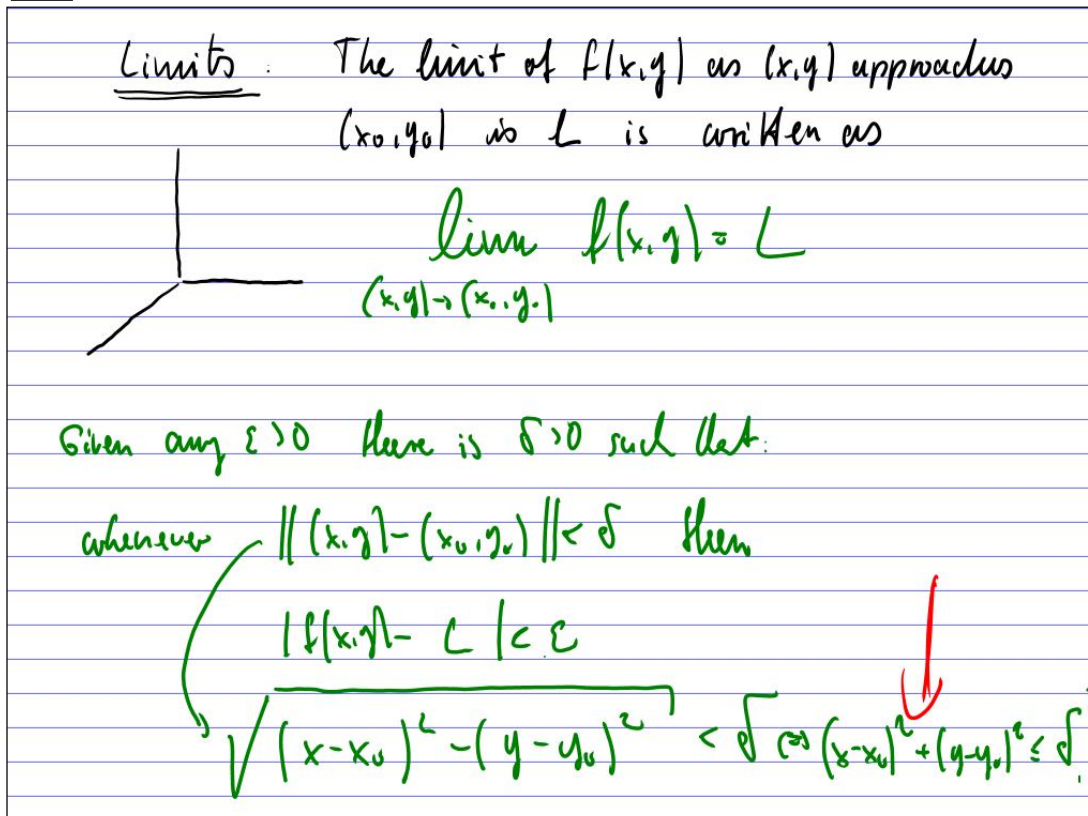 Limits : The limit of f(x,y) as (x,y) approaches
(x₀,y₀) is L is written as
lim f(x,y) = L
(x,y)→(x₀,y₀)
Given any ε>0 there is δ>0 such that:
whenever ||(x,y)-(x₀,y₀)||<δ then
|f(x,y)- L |< ε
√((x-x₀)² -(y-y₀)²) < δ ⇔ (x-x₀)²+(y-y₀)² ≤ δ